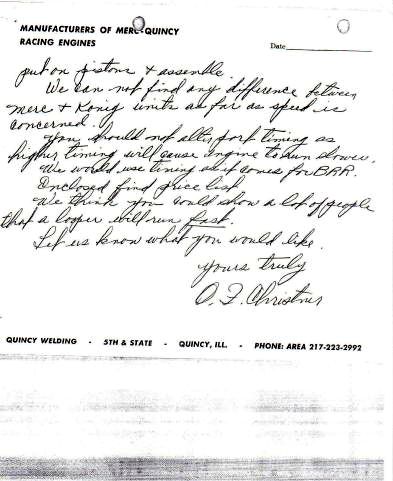 MANUFACTURERS OF MERC-QUINCY
RACING ENGINES
Date
put on pistons & assemble.
We can not find any difference between
merc & Konig units as far as speed is
concerned.
You should not alter port timing as
higher timing will cause engine to run slower.
We would use lining as it comes for BRR.
Enclosed find price list
We think you could show a lot of people
that a looper will run fast.
Let us know what you would like.
Yours truly
O. F. Christner
QUINCY WELDING - 5TH & STATE - QUINCY, ILL. - PHONE: AREA 217-223-2992